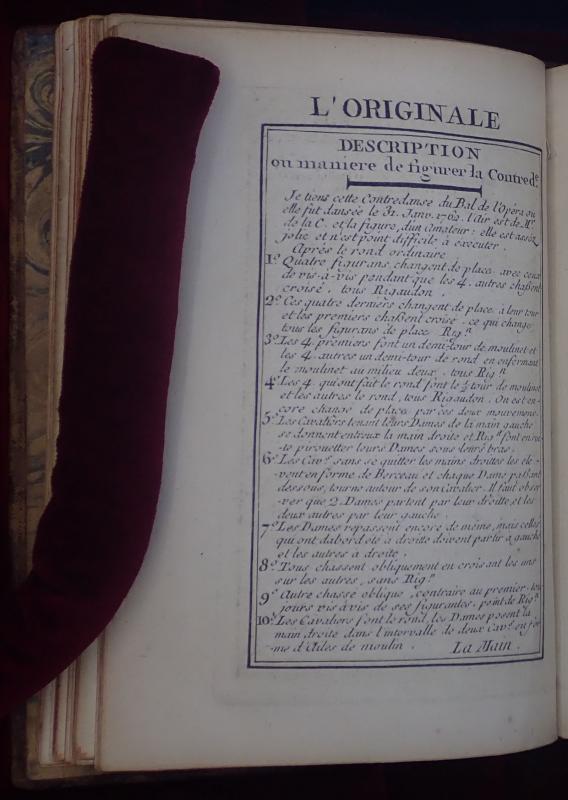 L'ORIGINALE
DESCRIPTION
ou maniere de figurer la Contred.e
Je tiens cette Contredanse du Bal de l'Opéra ou
elle fut dansée le 31. Janv. 1762. l'Air est de M.r
de la C. et la figure, d'un Amateur: elle est asséz
jolie et n'est point difficile à executer.
Après le rond ordinaire
1.o Quatre figurans changent de place avec ceux
de vis-à-vis pendant que les 4. autres chassent
croisé, tous Rigaudon.
2.o Ces quatre derniers changent de place à leur tour
et les premiers chassent croisé, ce qui change
tous les figurans de place Rig.n
3.o Les 4. premiers font un demi-tour de moulinet et
les 4. autres un demi-tour de rond en enfermant
le moulinet au milieu deux, tous Rig.n
4.o Les 4. qui ont fait le rond font le ½ tour de moulinet
et les autres le rond, tous Rigaudon. On est en-
core changé de place par ces deux mouvemens.
5.o Les Cavaliers tenant leurs Dames de la main gauche
se donnent entr'eux la main droite et Rig.n font ensui-
te pirouetter leurs Dames sous leurs bras.
6.o Les Cav.rs sans se quitter les mains droites les éle-
vent en forme de Berceau et chaque Dame passant
dessous, tourne autour de son Cavalier. Il faut obser-
ver que 2. Dames partent par leur droitte et les
deux autres par leur gauche.
7.o Les Dames repassent encore de même, mais celles
qui ont dabord été à droite doivent partir a gauche
et les autres à droite.
8.o Tous chassent obliquement en croisant les uns
sur les autres, sans Rig.n
9.o Autre chassé oblique, contraire au premier, tou-
jours vis à vis de ses figurantes, point de Rig.n
10.o Les Cavaliers font le rond, les Dames posent la
main droite dans l'intervalle de deux Cav.rs en for-
me d'Ailes de moulin. La Main.